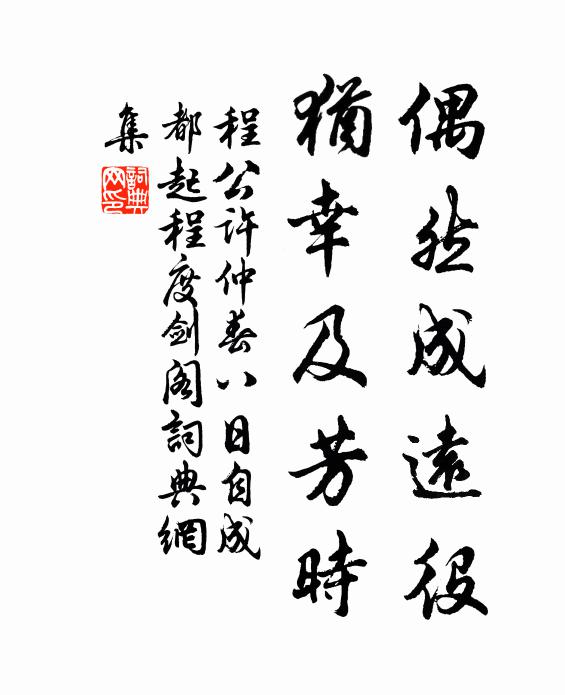 偶然成遠役
猶幸及芳時
程公許仲春八日自成
都起程度劍閣詞典網
集
詞典
网印